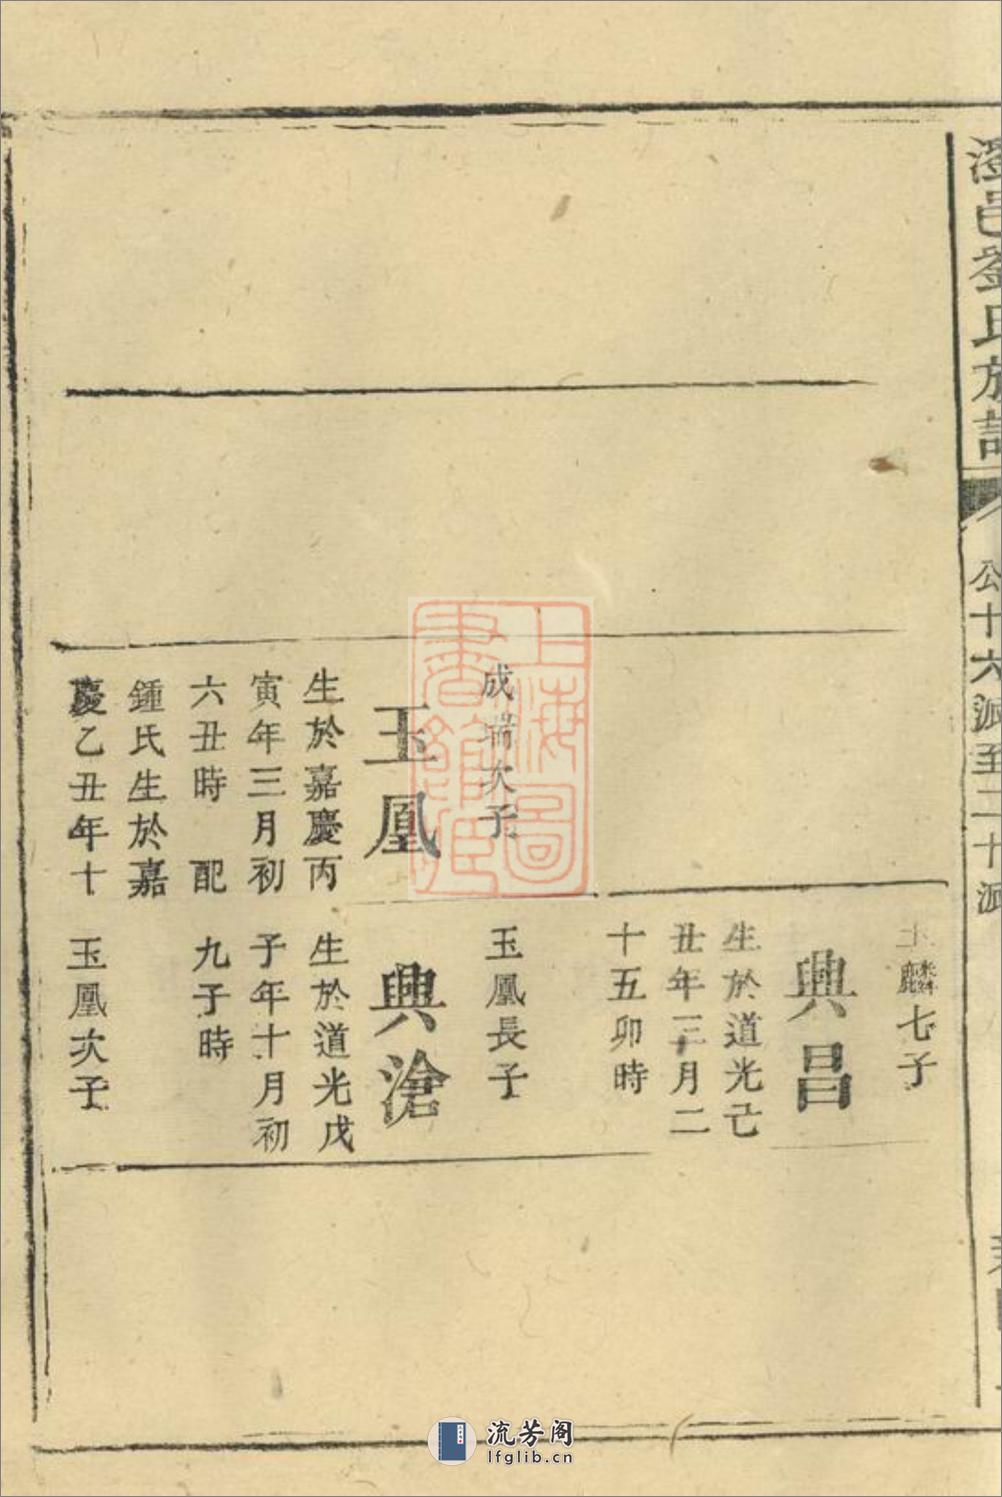 邑劉氏族譜
公十六派至二十派
玉麟七子
典昌
生於道光己
丑年三月二
十五卯時
成瑞次子
玉凰
生於嘉慶丙
寅年三月初
六丑時 配
鍾氏生於嘉
慶乙丑年十
玉凰長子
典滄
生於道光戊
子年十月初
九子時
玉凰次子
上海圖
書館藏
流芳阁
lfglib.cn